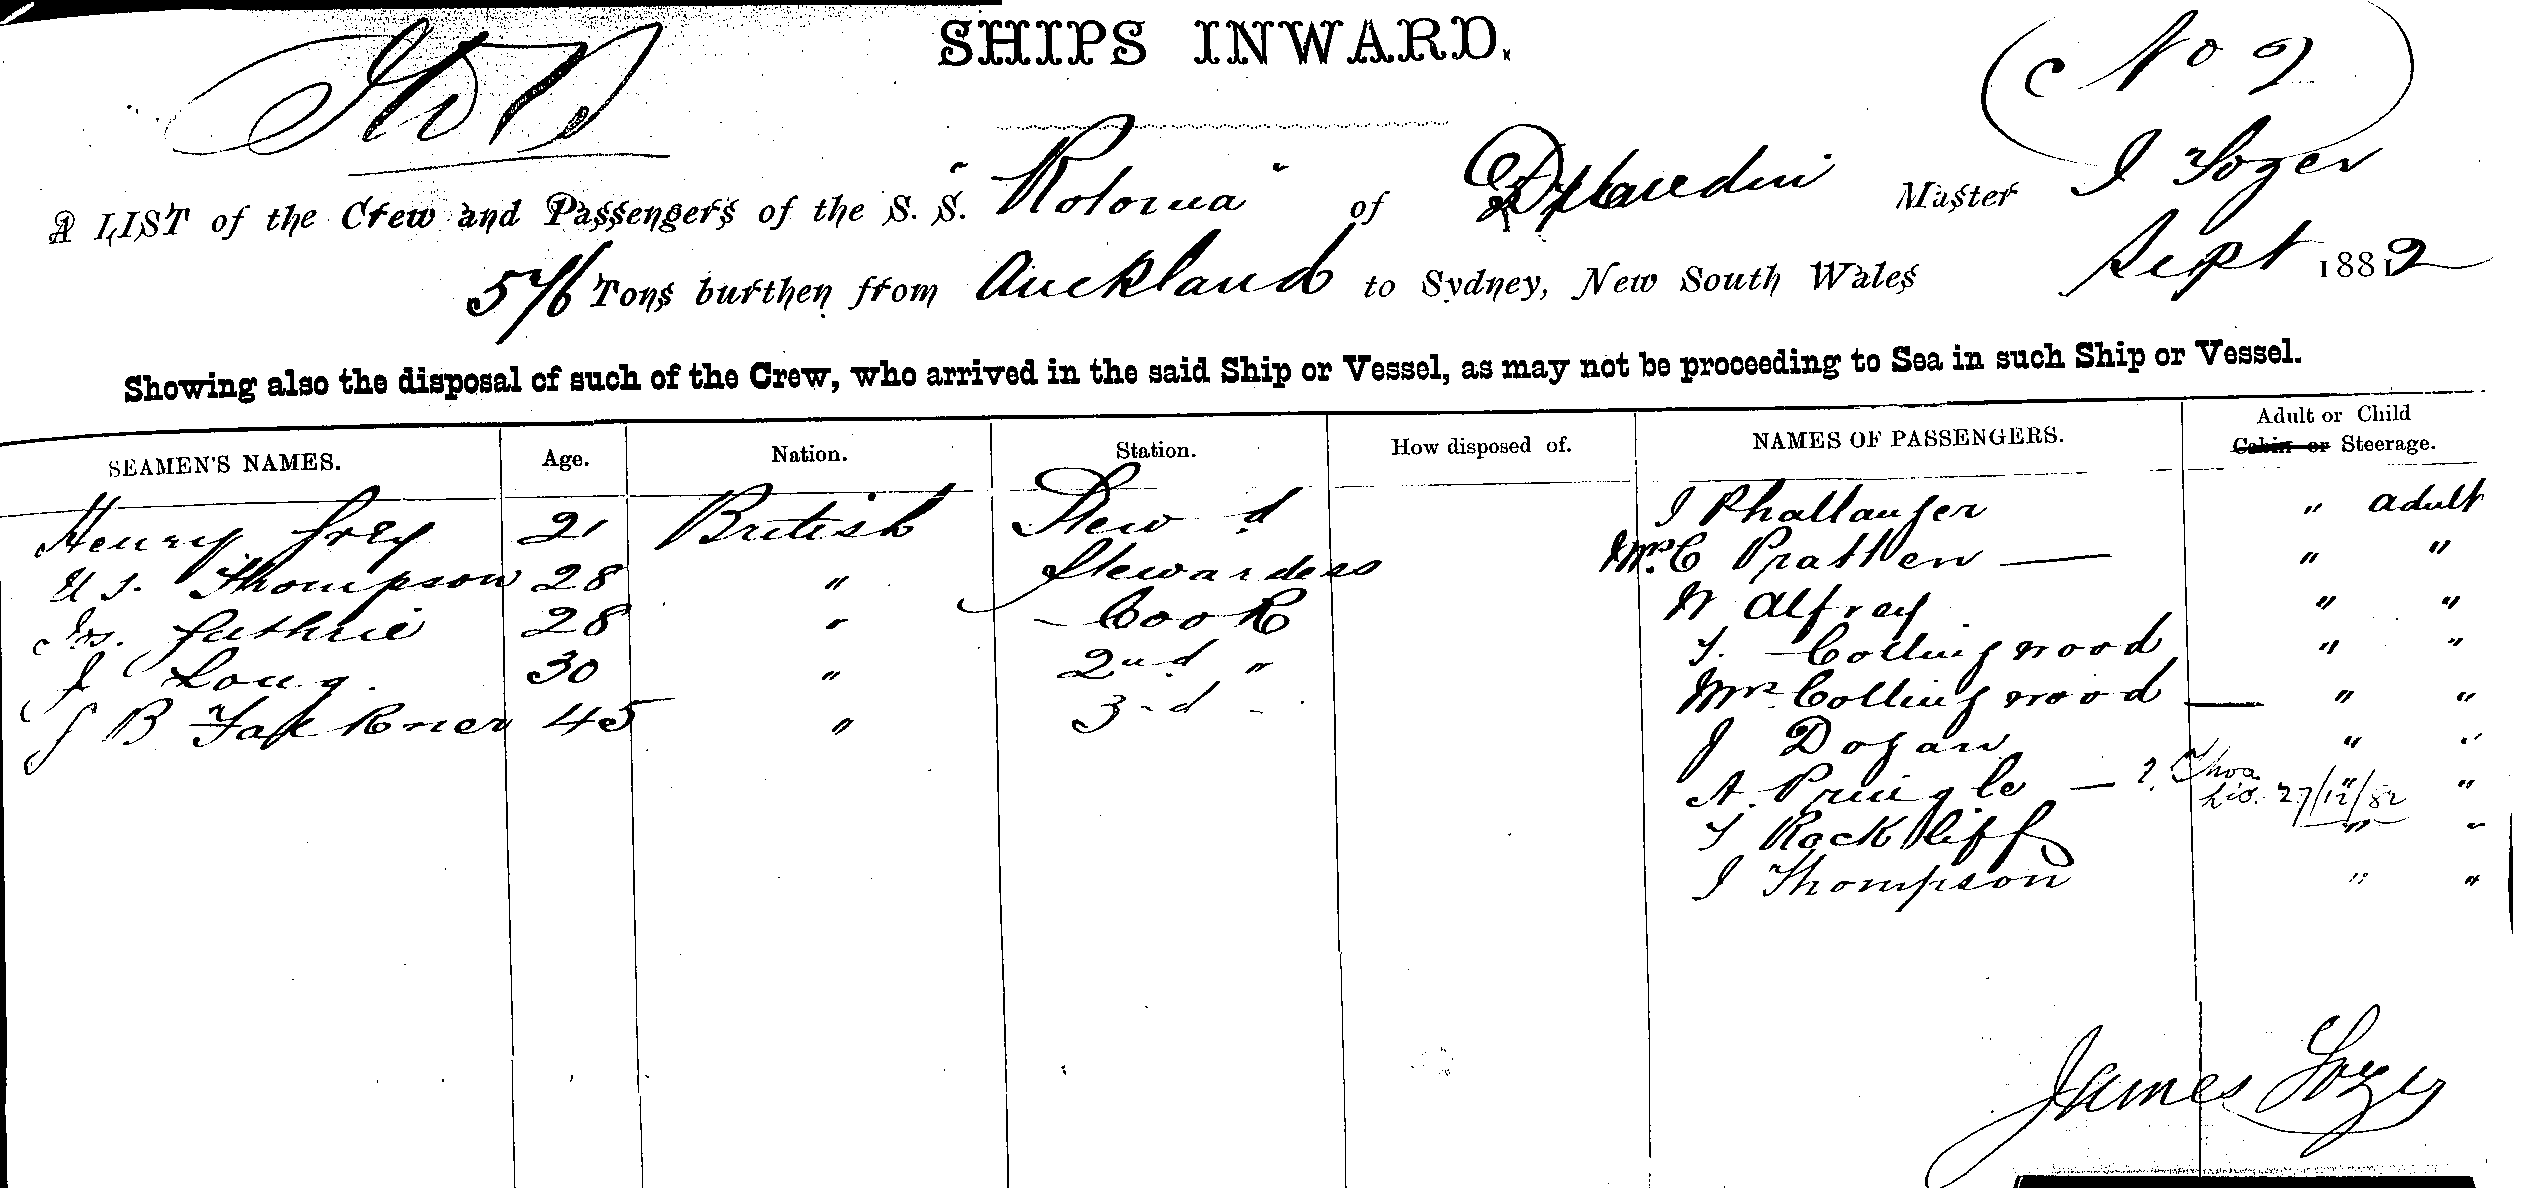 SHIPS INWARD.
(No 2
A LIST of the Crew and Passengers of the S. S. "Rotorua" of Dunedin Master J Tozer
576 Tons burthen from Auckland to Sydney, New South Wales Sept 1882
Showing also the disposal of such of the Crew, who arrived in the said Ship or Vessel, as may not be proceeding to Sea in such Ship or Vessel.
SEAMEN'S NAMES. Age. Nation. Station. How disposed of. NAMES OF PASSENGERS. Adult or Child Cabin or Steerage.
Henry Grey 21 British Stew d J Phallanger " adult
Thompson 28 " Stewardess Mrs C Pratten — " "
Jas. Guthrie 28 " Cook W Alfrey " "
J Long. 30 " 2nd " T. Collingwood " "
J B Falkner 45 " 3rd " Mrs Collingwood — " "
J Dogan " "
A. Pringle — ? Thos. " "
27/12/82
T Rockliff " "
J Thompson " "
James Tozer